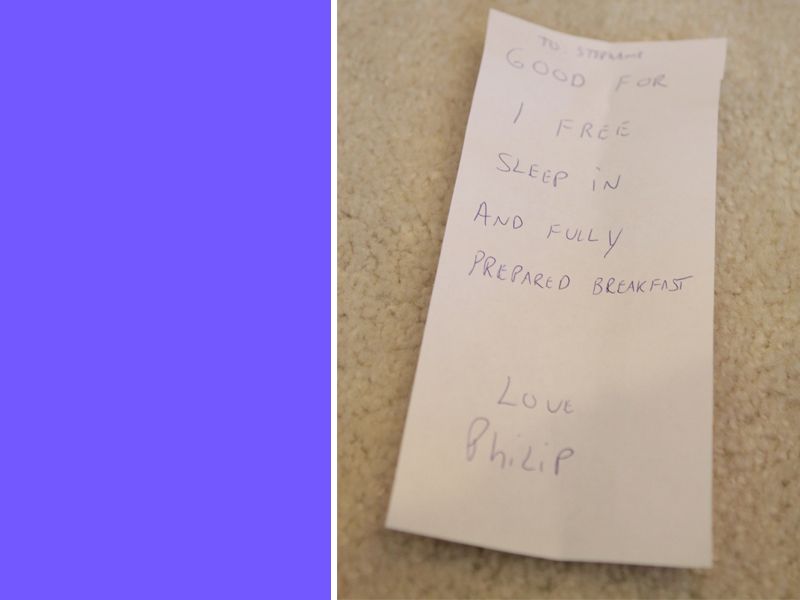 TO: STEPHANIE
GOOD FOR
1 FREE
SLEEP IN
AND FULLY
PREPARED BREAKFAST
LOVE
PHiLiP